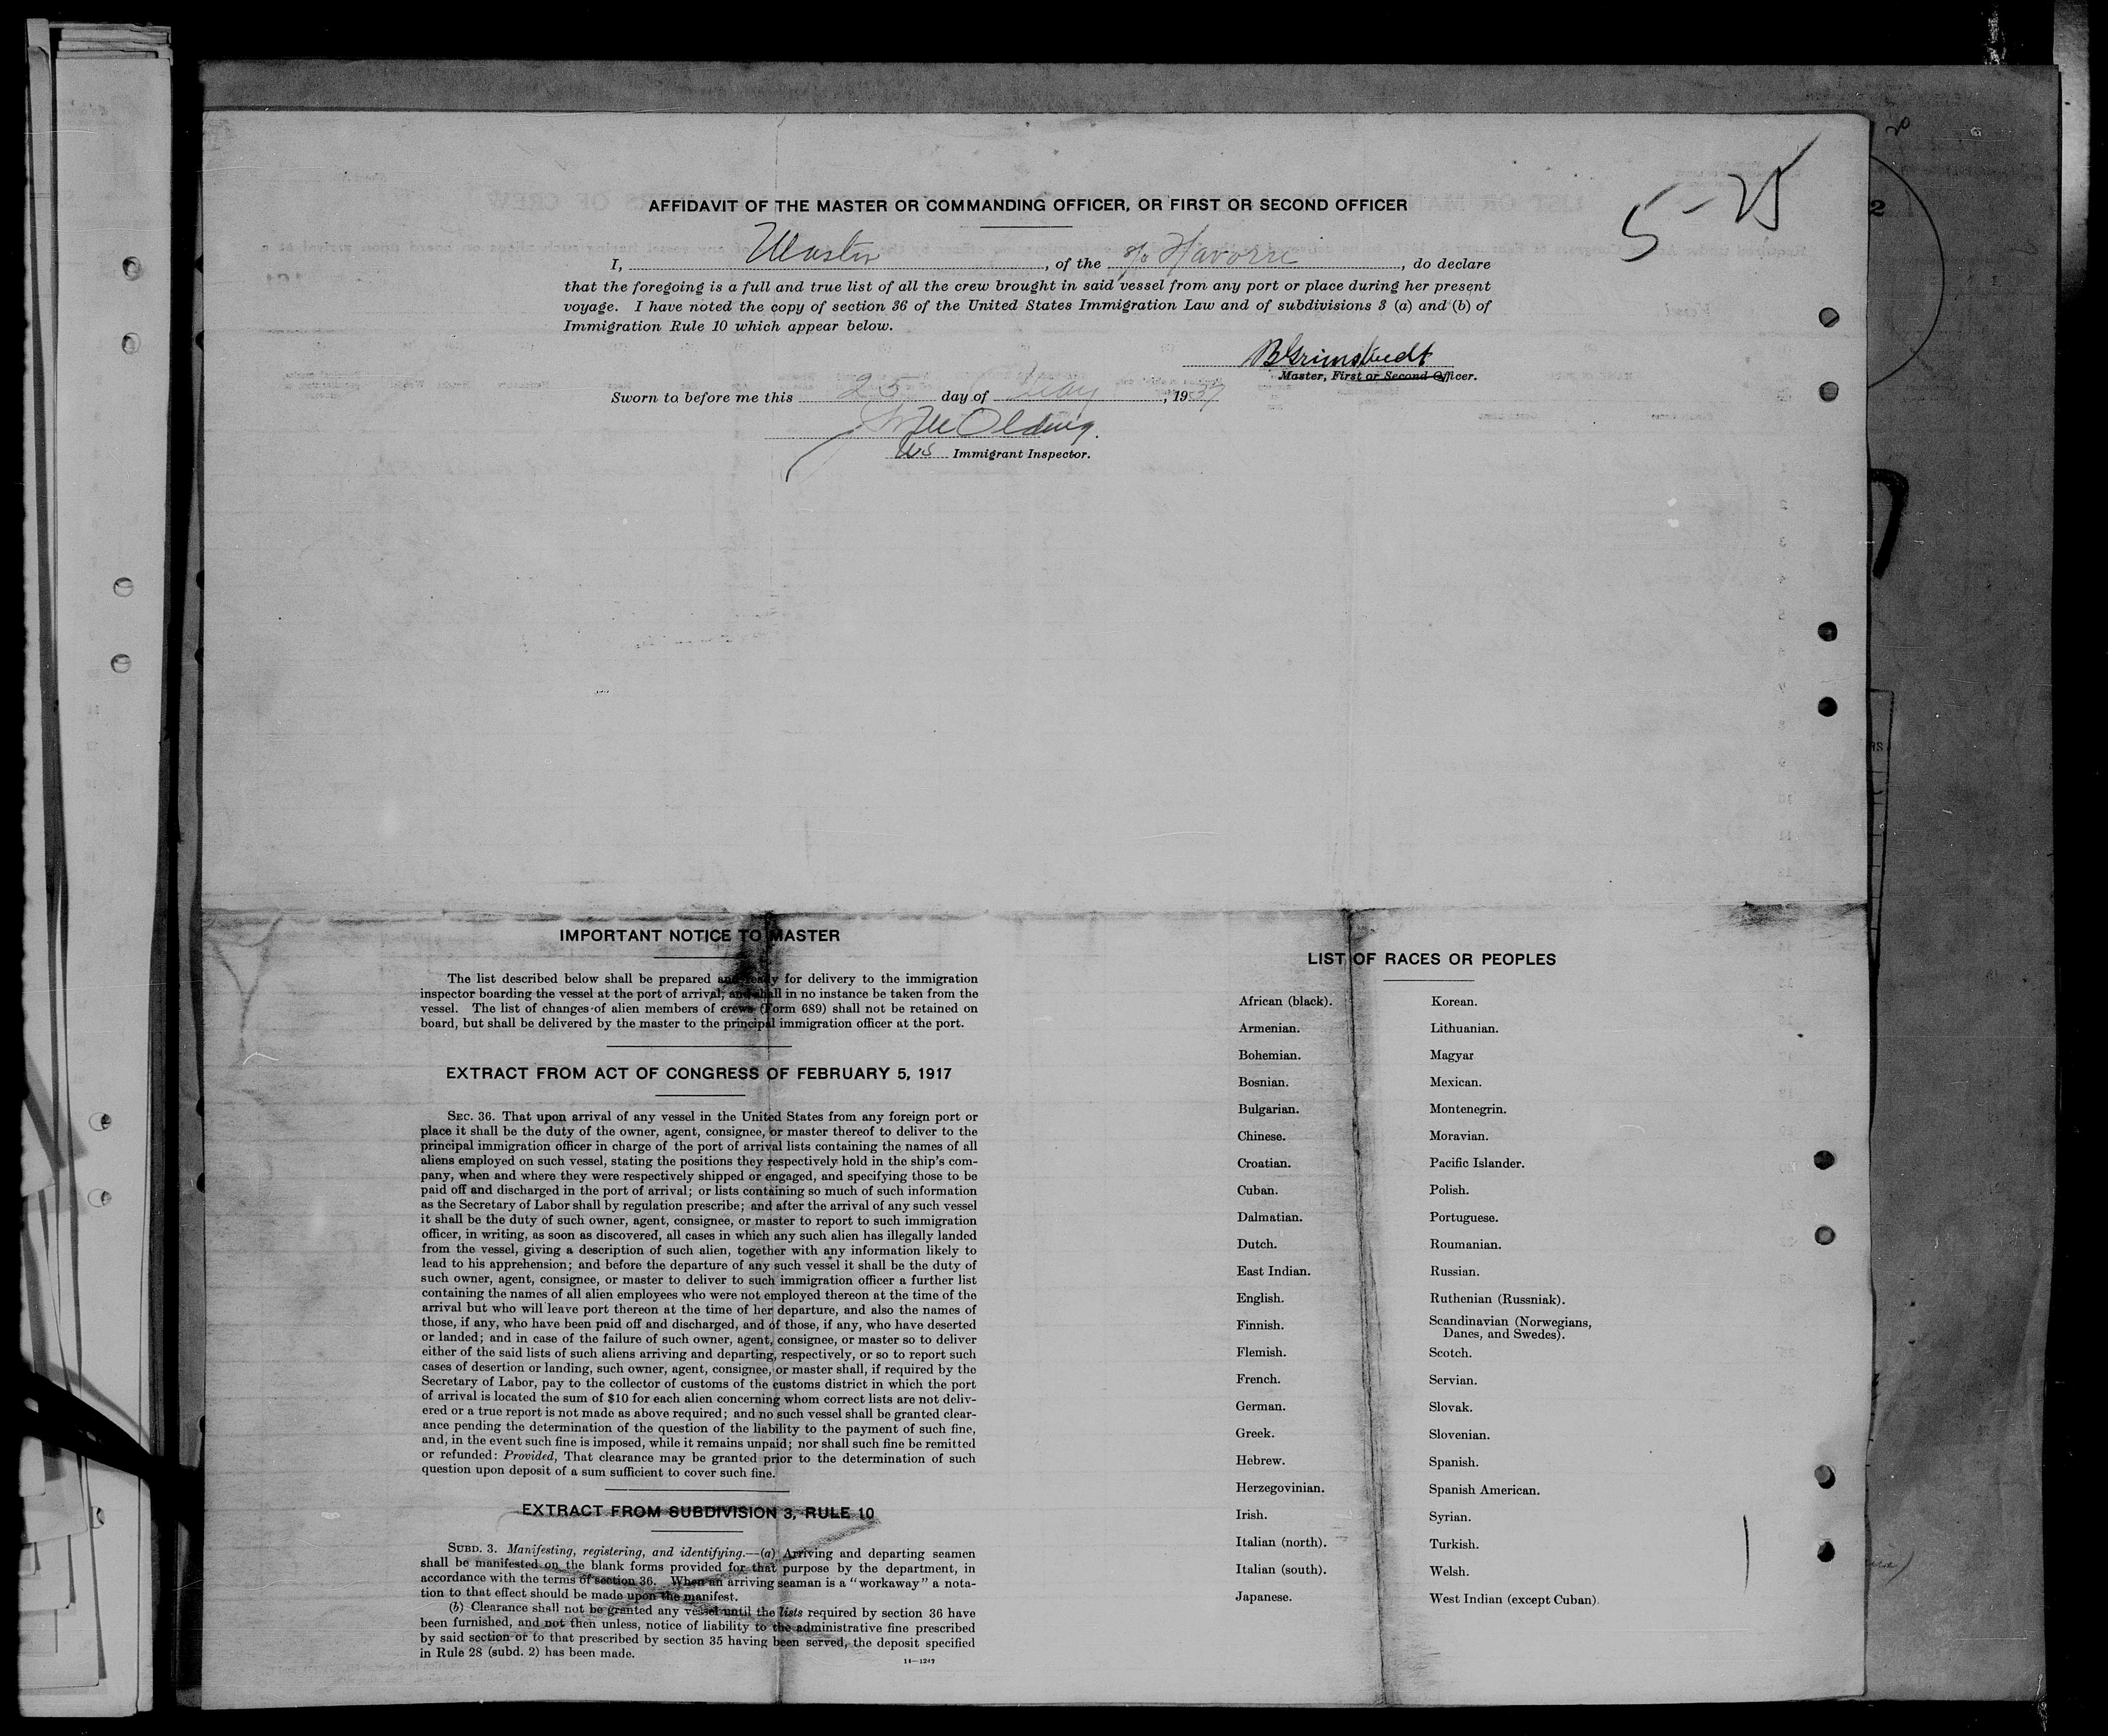 5-25
AFFIDAVIT OF THE MASTER OR COMMANDING OFFICER, OR FIRST OR SECOND OFFICER
I, Master, of the Havorri, do declare
that the foregoing is a full and true list of all the crew brought in said vessel from any port or place during her present
voyage. I have noted the copy of section 36 of the United States Immigration Law and of subdivisions 3 (a) and (b) of
Immigration Rule 10 which appear below.
Master, First or Second Officer.
Sworn to before me this 25 day of May, 1937
Olding.
US Immigrant Inspector.
IMPORTANT NOTICE TO MASTER
The list described below shall be prepared and ready for delivery to the immigration
inspector boarding the vessel at the port of arrival, and shall in no instance be taken from the
vessel. The list of changes of alien members of crews (Form 689) shall not be retained on
board, but shall be delivered by the master to the principal immigration officer at the port.
EXTRACT FROM ACT OF CONGRESS OF FEBRUARY 5, 1917
SEC. 36. That upon arrival of any vessel in the United States from any foreign port or
place it shall be the duty of the owner, agent, consignee, or master thereof to deliver to the
principal immigration officer in charge of the port of arrival lists containing the names of all
aliens employed on such vessel, stating the positions they respectively hold in the ship's com-
pany, when and where they were respectively shipped or engaged, and specifying those to be
paid off and discharged in the port of arrival; or lists containing so much of such information
as the Secretary of Labor shall by regulation prescribe; and after the arrival of any such vessel
it shall be the duty of such owner, agent, consignee, or master to report to such immigration
officer, in writing, as soon as discovered, all cases in which any such alien has illegally landed
from the vessel, giving a description of such alien, together with any information likely to
lead to his apprehension; and before the departure of any such vessel it shall be the duty of
such owner, agent, consignee, or master to deliver to such immigration officer a further list
containing the names of all alien employees who were not employed thereon at the time of the
arrival but who will leave port thereon at the time of her departure, and also the names of
those, if any, who have been paid off and discharged, and of those, if any, who have deserted
or landed; and in case of the failure of such owner, agent, consignee, or master so to deliver
either of the said lists of such aliens arriving and departing, respectively, or so to report such
cases of desertion or landing, such owner, agent, consignee, or master shall, if required by the
Secretary of Labor, pay to the collector of customs of the customs district in which the port
of arrival is located the sum of $10 for each alien concerning whom correct lists are not deliv-
ered or a true report is not made as above required; and no such vessel shall be granted clear-
ance pending the determination of the question of the liability to the payment of such fine,
and, in the event such fine is imposed, while it remains unpaid; nor shall such fine be remitted
or refunded: Provided, That clearance may be granted prior to the determination of such
question upon deposit of a sum sufficient to cover such fine.
EXTRACT FROM SUBDIVISION 3, RULE 10
SUBD. 3. Manifesting, registering, and identifying.—(a) Arriving and departing seamen
shall be manifested on the blank forms provided for that purpose by the department, in
accordance with the terms of section 36. When an arriving seaman is a "workaway" a nota-
tion to that effect should be made upon the manifest.
(b) Clearance shall not be granted any vessel until the lists required by section 36 have
been furnished, and not then unless, notice of liability to the administrative fine prescribed
by said section or to that prescribed by section 35 having been served, the deposit specified
in Rule 28 (subd. 2) has been made.
14—1247
LIST OF RACES OR PEOPLES
African (black).
Armenian.
Bohemian.
Bosnian.
Bulgarian.
Chinese.
Croatian.
Cuban.
Dalmatian.
Dutch.
East Indian.
English.
Finnish.
Flemish.
French.
German.
Greek.
Hebrew.
Herzegovinian.
Irish.
Italian (north).
Italian (south).
Japanese.
Korean.
Lithuanian.
Magyar
Mexican.
Montenegrin.
Moravian.
Pacific Islander.
Polish.
Portuguese.
Roumanian.
Russian.
Ruthenian (Russniak).
Scandinavian (Norwegians,
Danes, and Swedes).
Scotch.
Servian.
Slovak.
Slovenian.
Spanish.
Spanish American.
Syrian.
Turkish.
Welsh.
West Indian (except Cuban).